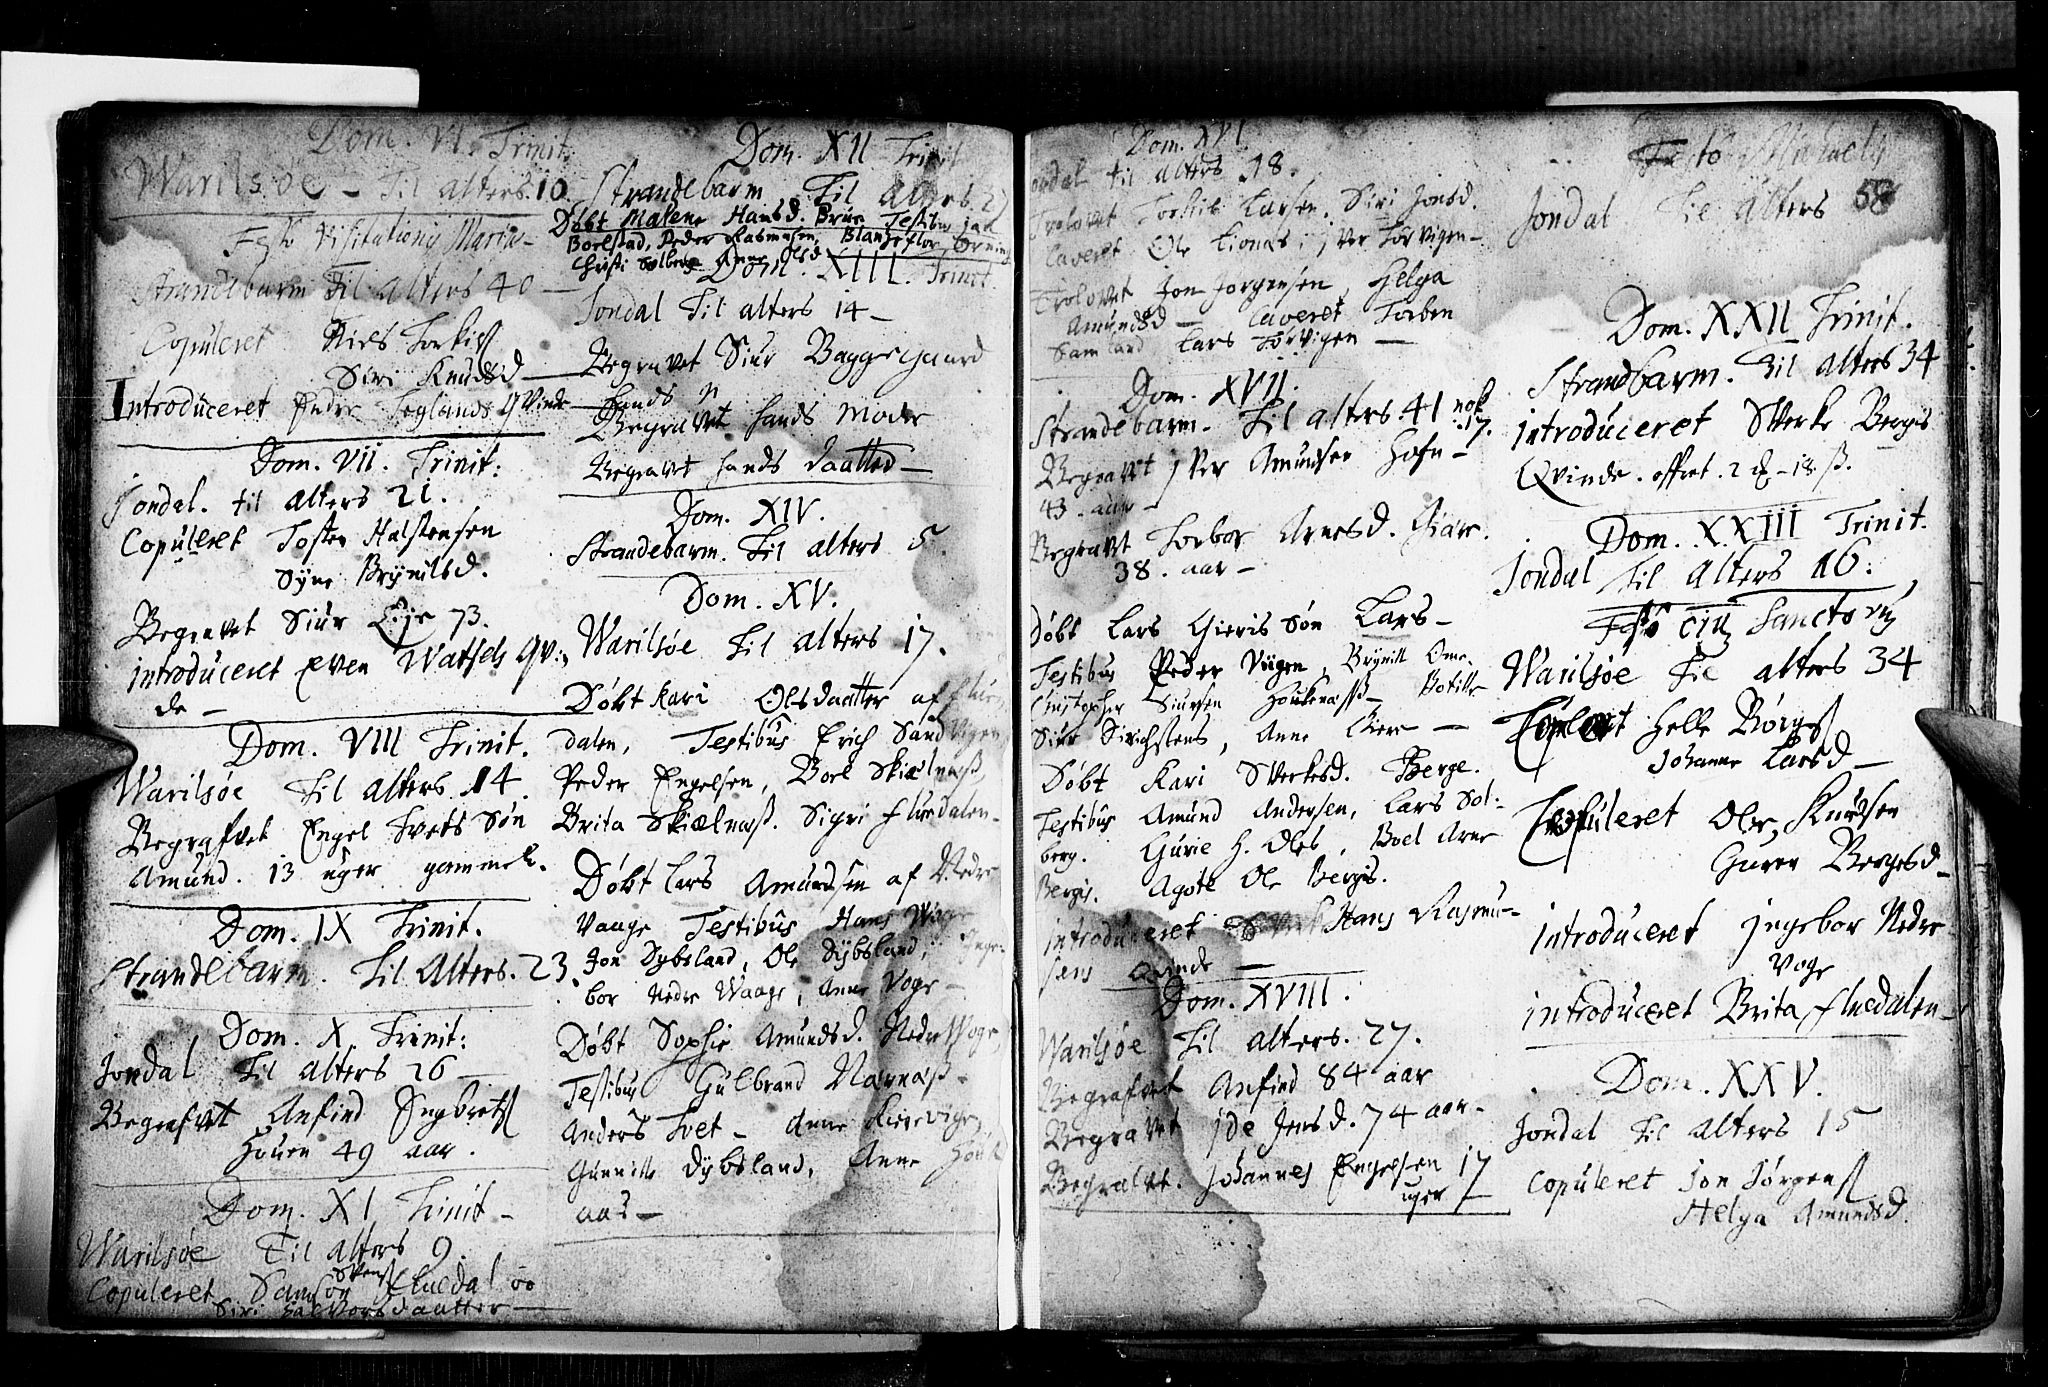 Dom. VI. Trinit.
Warilsøe – Til alters. 10.
Festo Visitationis Mariæ –
Strandebarm Til alters 40 –
Copuleret Niels Torkilß
Siri Knudsd –
Introduceret Endre Teglands Qvinde
Dom. VII. Trinit:
Jondal. til alters 21.
Copuleret Tosten Halstensen
Syne Brynilsd.
Begravet Siur Eije 73.
introduceret Even Watsels qvin
de –
Dom. VIII Trinit.
Warilsøe Til alters 14.
Begrafvet Engel Tvets Søn
Amund. 13 uger gammel.
Dom. IX Trinit.
Strandebarm. Til Alters. 23.
Dom. X Trinit:
Jondal Til alters 26 –
Begrafvet Anfind Ingbretß
Houen 49 aar.
Dom. XI Trinit –
Warilsøe Til alters 9.
Copuleret Samson Svenß Fluedal oc
Siri Halvorsdaatter –
Dom. XII Trinit
Strandebarm Til Alters. 27
Døbt Malene Hansd. Brüe Testibus Jan
Boelstad, Peder Rasmusen, Blanzeflor Orning
Christi Solberg Anne Olsd
Dom. XIII. Trinit.
Jondal Til alters 14 –
Begravet Siur Baggegaard
Begravet hands Moder
Begravet hands daatter –
Dom. XIV.
Strandebarm. Til alters 5.
Dom. XV.
Warilsøe Til alters 17.
Døbt Kari Olsdaatter af Flue
dalen, Testibus Erich Sandvigen
Peder Engelsen, Boel Skiælnæß,
Brita Skiælnæß. Sigri Fluedalen.
Døbt Lars Amundsen af Nedre
Vaage Testibus Hans Woge
Jon Dybsland, Ole Dybsland, Inge-
bor Nedre Waage, Anne Voge –
Døbt Sophie Amundsd. Nedre Woge,
Testibus Gulbrand Narnæß –
Anders Tvet – Anne Kierevigen,
Gunnild Dybsland, Anne Houk
aas –
Dom. XVI
Jondal til alters 18.
Trolovet Torkil Larsen. Siri Jonsd.
Caveret Ole Lionæs, Iver Torvigen –
Trolovet Jon Jørgensen, Helga
Amundsd – Caveret Torben
Samland Lars Torvigen –
Dom. XVII.
Strandebarm. Til alters 41 nok 17.
Begravet Iver Amundsen Hofn –
43. aar –
Begravet Torbor Arnesd. Kiær.
38. aar –
Døbt Lars Gieris Søn Lars –
Testibus Peder Viigen, Brynill Ome.
Christopher Siursen Houkenæß, Botille
Siur Sirichstens, Anne Kiere –
Døbt Kari Sverkesd. Berge.
Testibus Amund Andersen, Lars Sol-
berg. Gurie H. Oles, Boel Arne
Bergis. Agote Ole Bergis.
introduceret Hans Rasmu-
sens Qvinde –
Dom. XVIII.
Warilsøe Til alters. 27.
Begrafvet Anfind 84 aar
Begravet Ide Jensd. 74 aar –
Begravet. Johannes Engelsen 17
uger –
Festo Michaelis
58
Jondal Til Alters
Dom. XXII Trinit.
Strandbarm. Til alters 34
introduceret Sverke Bergis
Qvinde. offret. 2 – 18 ß.
Dom. XXIII Trinit.
Jondal Til Alters 16.
Festo Sanctorum
Warilsøe Til alters 34
Helle Børgeß
Johanne Larsd –
Copuleret Ole Knudsen
Guren Bergesd –
introduceret Ingebor Nedre
Voge
introduceret Brita Fluedalen –
Dom. XXV.
Jondal Til alters 15
Copuleret Jon Jørgenß
Helga Amundsd.